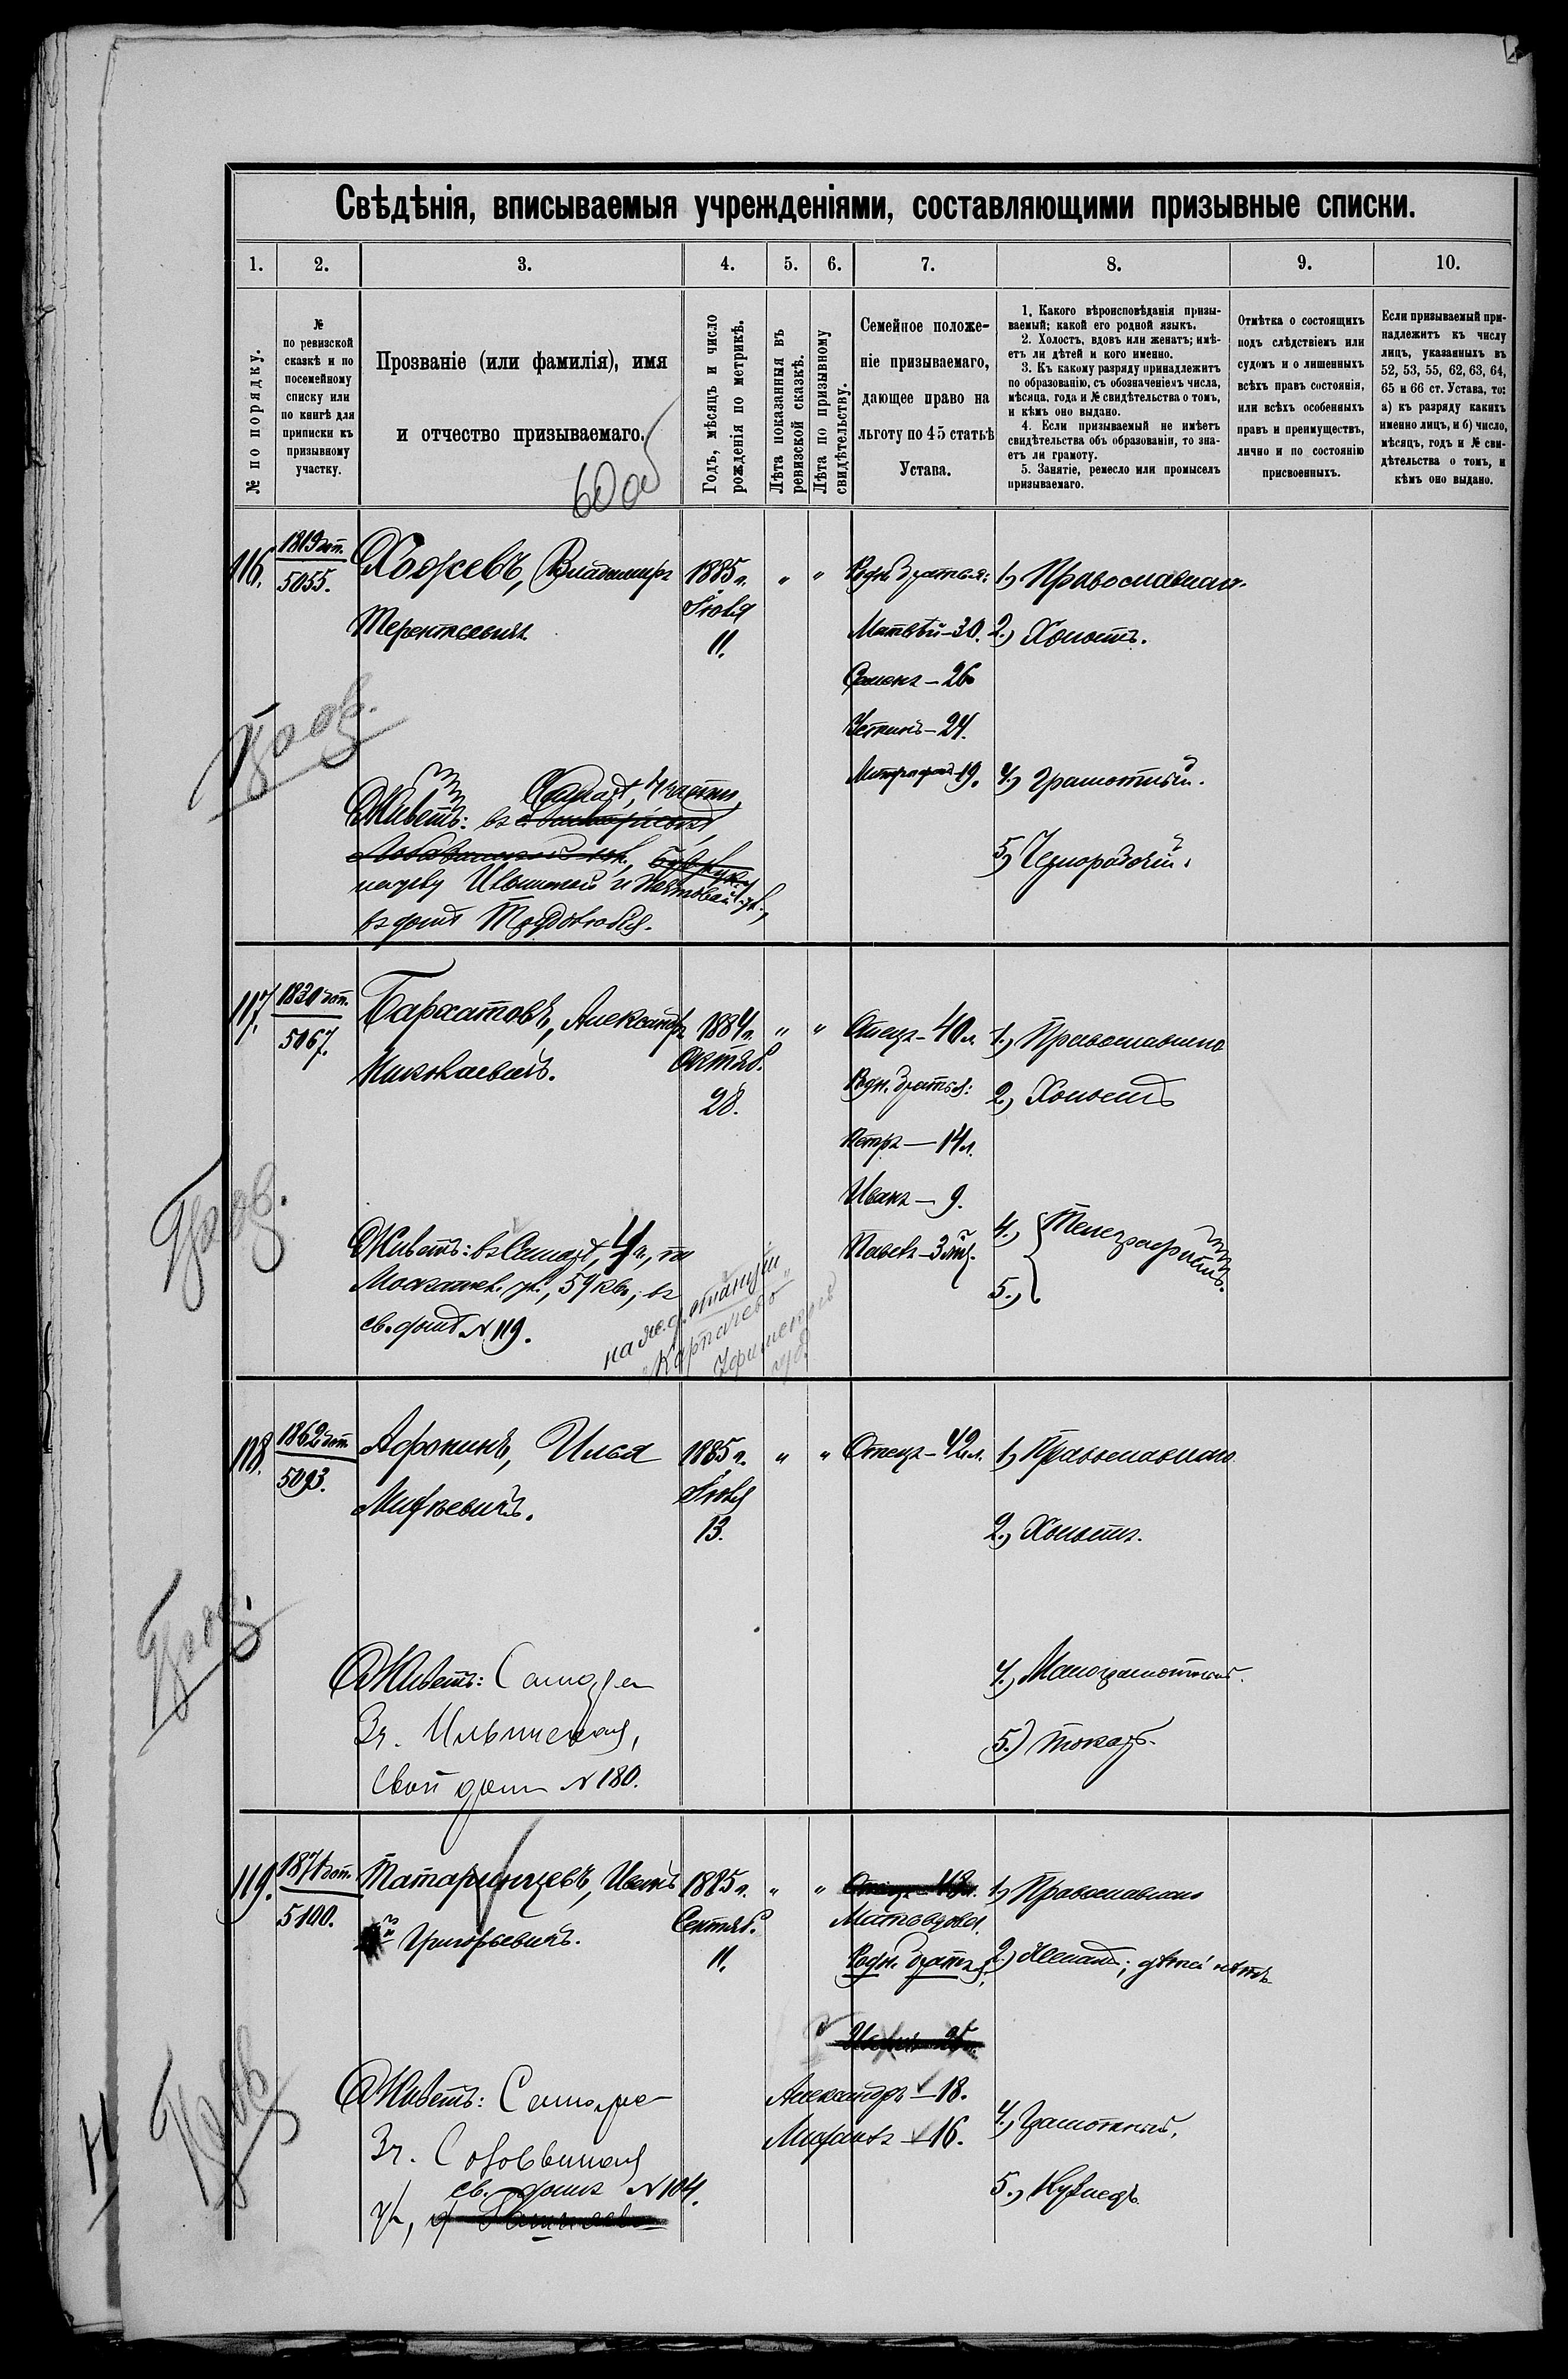 Свѣдѣнія, вписываемыя учрежденіями, составляющими призывные списки.
1. 2. 3. 4. 5. 6. 7. 8. 9. 10.
№ по порядку.
№
по ревизской
сказкѣ и по
посемейному
списку или
по книгѣ для
приписки къ
призывному
участку.
Прозваніе (или фамилія), имя
и отчество призываемаго.
Годъ, мѣсяцъ и число
рожденія по метрикѣ.
Лѣта показанныя въ
ревизской сказкѣ.
Лѣта по призывному
свидѣтельству.
Семейное положе-
ніе призываемаго,
дающее право на
льготу по 45 статьѣ
Устава.
1. Какого вѣроисповѣданія призы-
ваемый; какой его родной языкъ.
2. Холостъ, вдовъ или женатъ; имѣ-
етъ ли дѣтей и кого именно.
3. Къ какому разряду принадлежитъ
по образованію, съ обозначеніемъ числа,
мѣсяца, года и № свидѣтельства о томъ,
и кѣмъ оно выдано.
4. Если призываемый не имѣетъ
свидѣтельства объ образованіи, то зна-
етъ ли грамоту.
5. Занятіе, ремесло или промыселъ
призываемаго.
Отмѣтка о состоящихъ
подъ слѣдствіемъ или
судомъ и о лишенныхъ
всѣхъ правъ состоянія,
или всѣхъ особенныхъ
правъ и преимуществъ,
лично и по состоянію
присвоенныхъ.
Если призываемый при-
надлежитъ къ числу
лицъ, указанныхъ въ
52, 53, 55, 62, 63, 64,
65 и 66 ст. Устава, то:
а) къ разряду какихъ
именно лицъ, и б) число,
мѣсяцъ, годъ и № сви-
дѣтельства о томъ, и
кѣмъ оно выдано.
116.
5055.
Владимиръ
Терентьевичъ.
1885 г.
Іюля
11.
" "
Родн. братья:
Матвѣй – 30.
Семенъ – 26
Устинъ – 24.
Митрофанъ – 19.
1.) Православнаго.
2.) Холостъ.
4.) Грамотный.
5) Чернорабочій.
Живетъ: въ Самарѣ, 4 части,
въ домѣ
117.
5067.
Бархатовъ, Александръ
Николаевичъ.
1884 г.
Октяб.
28.
" "
Отецъ – 40 л.
Родн. братья:
Петръ – 14 л.
Иванъ – 9.
Павелъ – 3
1.) Православнаго
2.) Холостъ
4.)
5.)
Телеграфистъ.
Живетъ: въ Самарѣ, 4 ч., по
Москател. ул., 59 кв., въ
св. домѣ № 119.
на ж. д. станціи
Уфимской
118.
5093.
Афонинъ, Илья
1885 г.
Іюля
13.
" "
Отецъ – 42 л.
1.) Православнаго
2.) Холостъ.
4.) Малограмотный.
5.) токарь.
Живетъ: Самара
3 ч. Ильинская,
свой домъ № 180.
119.
5100.
Татаринцевъ, Иванъ
Григорьевичъ.
1885 г.
Сентяб.
11.
" "
Мать вдова.
Родн. братья:
Александръ – 18.
Михаилъ – 16.
1.) Православнаго
2.) Женатъ; дѣтей нѣтъ
4.) Грамотный,
5.) Кузнецъ.
Живетъ: Самара
3 ч. Соловьиная
св. домъ № 104.